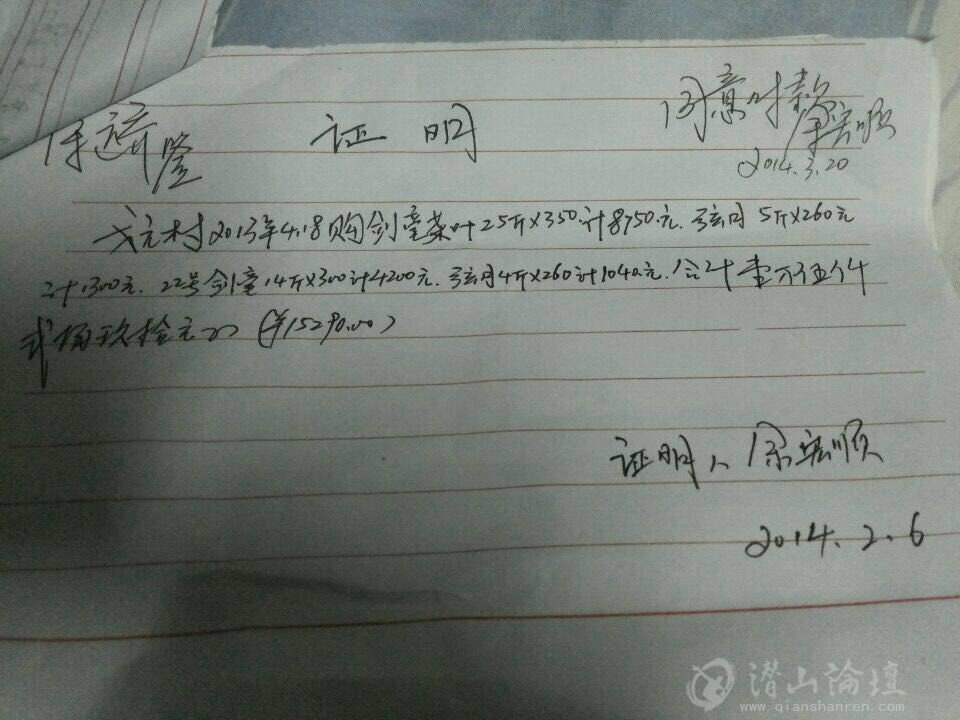 证明
同意付款
2014.3.20
我村2013年4.18购剑毫茶叶25斤×350.计8750.元.弦月5斤×260元
计1300元.22号剑毫14斤×300计4200元.弦月4斤×260计1040.元.合计壹万伍仟
贰佰玖拾元 (¥15290.00)
证明人 余宏顺
2014.2.6
潜山论坛
www.qianshanren.com